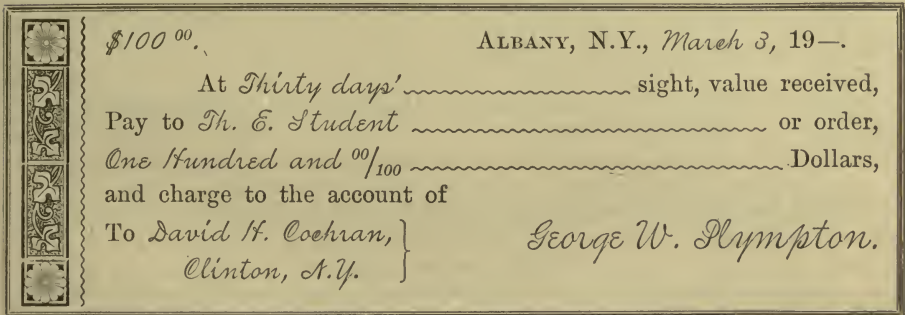 $100 00. ALBANY, N.Y., March 3, 19—.
At Thirty days' sight, value received,
Pay to Th. E. Student or order,
One Hundred and 00/100 Dollars,
and charge to the account of
To David H. Cochran,
George W. Plympton.
Clinton, N.Y.